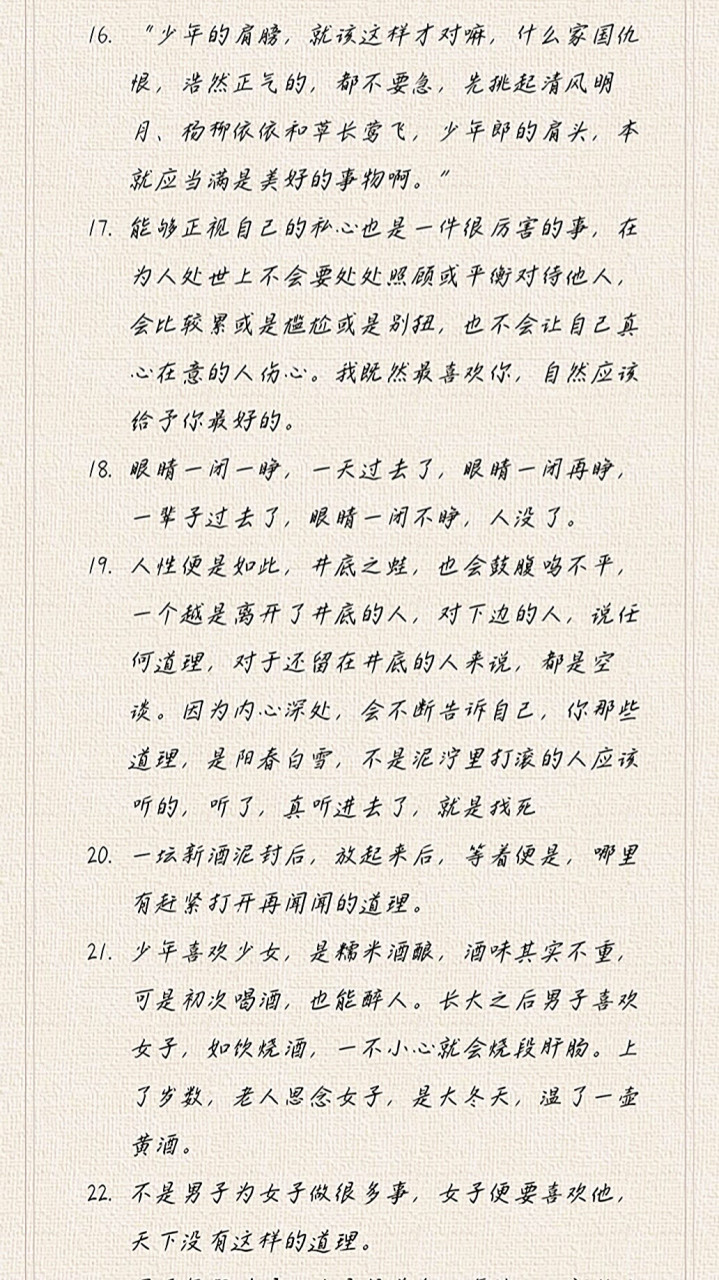 16. “少年的肩膀，就该这样才对嘛，什么家国仇
恨，浩然正气的，都不要急，先挑起清风明
月、杨柳依依和草长莺飞，少年郎的肩头，本
就应当满是美好的事物啊。”
17. 能够正视自己的私心也是一件很厉害的事，在
为人处世上不会要处处照顾或平衡对待他人，
会比较累或是尴尬或是别扭，也不会让自己真
心在意的人伤心。我既然最喜欢你，自然应该
给予你最好的。
18. 眼睛一闭一睁，一天过去了，眼睛一闭再睁，
一辈子过去了，眼睛一闭不睁，人没了。
19. 人性便是如此，井底之蛙，也会鼓腹鸣不平，
一个越是离开了井底的人，对下边的人，说任
何道理，对于还留在井底的人来说，都是空
谈。因为内心深处，会不断告诉自己，你那些
道理，是阳春白雪，不是泥泞里打滚的人应该
听的，听了，真听进去了，就是找死
20. 一坛新酒泥封后，放起来后，等着便是，哪里
有赶紧打开再闻闻的道理。
21. 少年喜欢少女，是糯米酒酿，酒味其实不重，
可是初次喝酒，也能醉人。长大之后男子喜欢
女子，如饮烧酒，一不小心就会烧段肝肠。上
了岁数，老人思念女子，是大冬天，温了一壶
黄酒。
22. 不是男子为女子做很多事，女子便要喜欢他，
天下没有这样的道理。